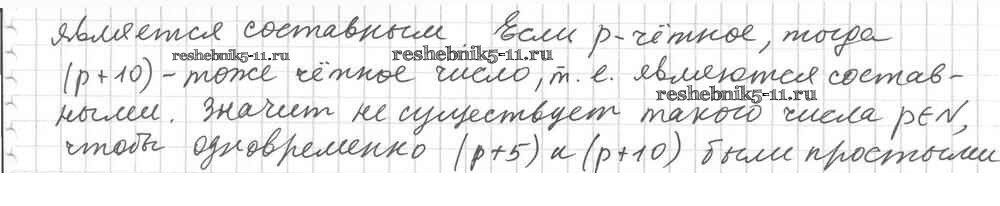 является составным Если p-чётное, тогда
reshebnik5-11.ru reshebnik5-11.ru
(p+10) - тоже чётное число, т. е. являются состав-
reshebnik5-11.ru
ными. Значит не существует такого числа p∈N,
чтобы одновременно (p+5) и (p+10) были простыми